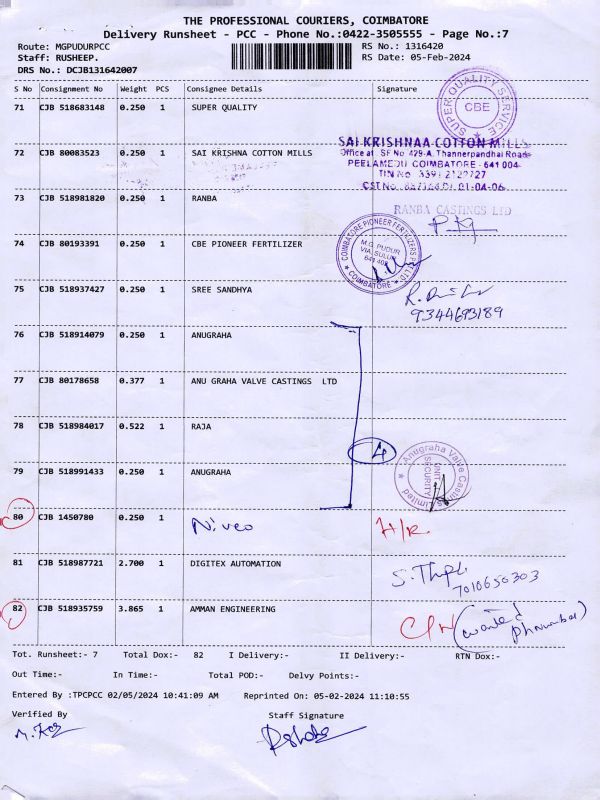 THE PROFESSIONAL COURIERS, COIMBATORE
Delivery Runsheet - PCC - Phone No.:0422-3505555 - Page No.:7
Route: MGPUDURPCC RS No.: 1316420
Staff: RUSHEEP. RS Date: 05-Feb-2024
DRS No.: DCJB131642007
S No Consignment No Weight PCS Consignee Details Signature
71 CJB 518683148 0.250 1 SUPER QUALITY
SUPER QUALITY SERVICE
CBE
72 CJB 80083523 0.250 1 SAI KRISHNA COTTON MILLS
SAI KRISHNAA COTTON MILLS
Office at SF No 429-A, Thannerpandhai Road
PEELAMEDU COIMBATORE - 641 004
TIN No
CST No.
73 CJB 518981820 0.250 1 RANBA
RANBA CASTINGS LTD
74 CJB 80193391 0.250 1 CBE PIONEER FERTILIZER
COIMBATORE PIONEER FERTILIZERS P LTD
M.G. PUDUR
VIA. SULUR
COIMBATORE
75 CJB 518937427 0.250 1 SREE SANDHYA
9344693189
76 CJB 518914079 0.250 1 ANUGRAHA
77 CJB 80178658 0.377 1 ANU GRAHA VALVE CASTINGS LTD
78 CJB 518984017 0.522 1 RAJA
4
79 CJB 518991433 0.250 1 ANUGRAHA
Anugraha Valve Castings Limited
UNIT
SECURITY
80 CJB 1450780 0.250 1 Niveo H/R
81 CJB 518987721 2.700 1 DIGITEX AUTOMATION
7010650303
82 CJB 518935759 3.865 1 AMMAN ENGINEERING
(wanted
Ph number)
Tot. Runsheet:- 7 Total Dox:- 82 I Delivery:- II Delivery:- RTN Dox:-
Out Time:- In Time:- Total POD:- Delvy Points:-
Entered By :TPCPCC 02/05/2024 10:41:09 AM Reprinted On: 05-02-2024 11:10:55
Verified By Staff Signature